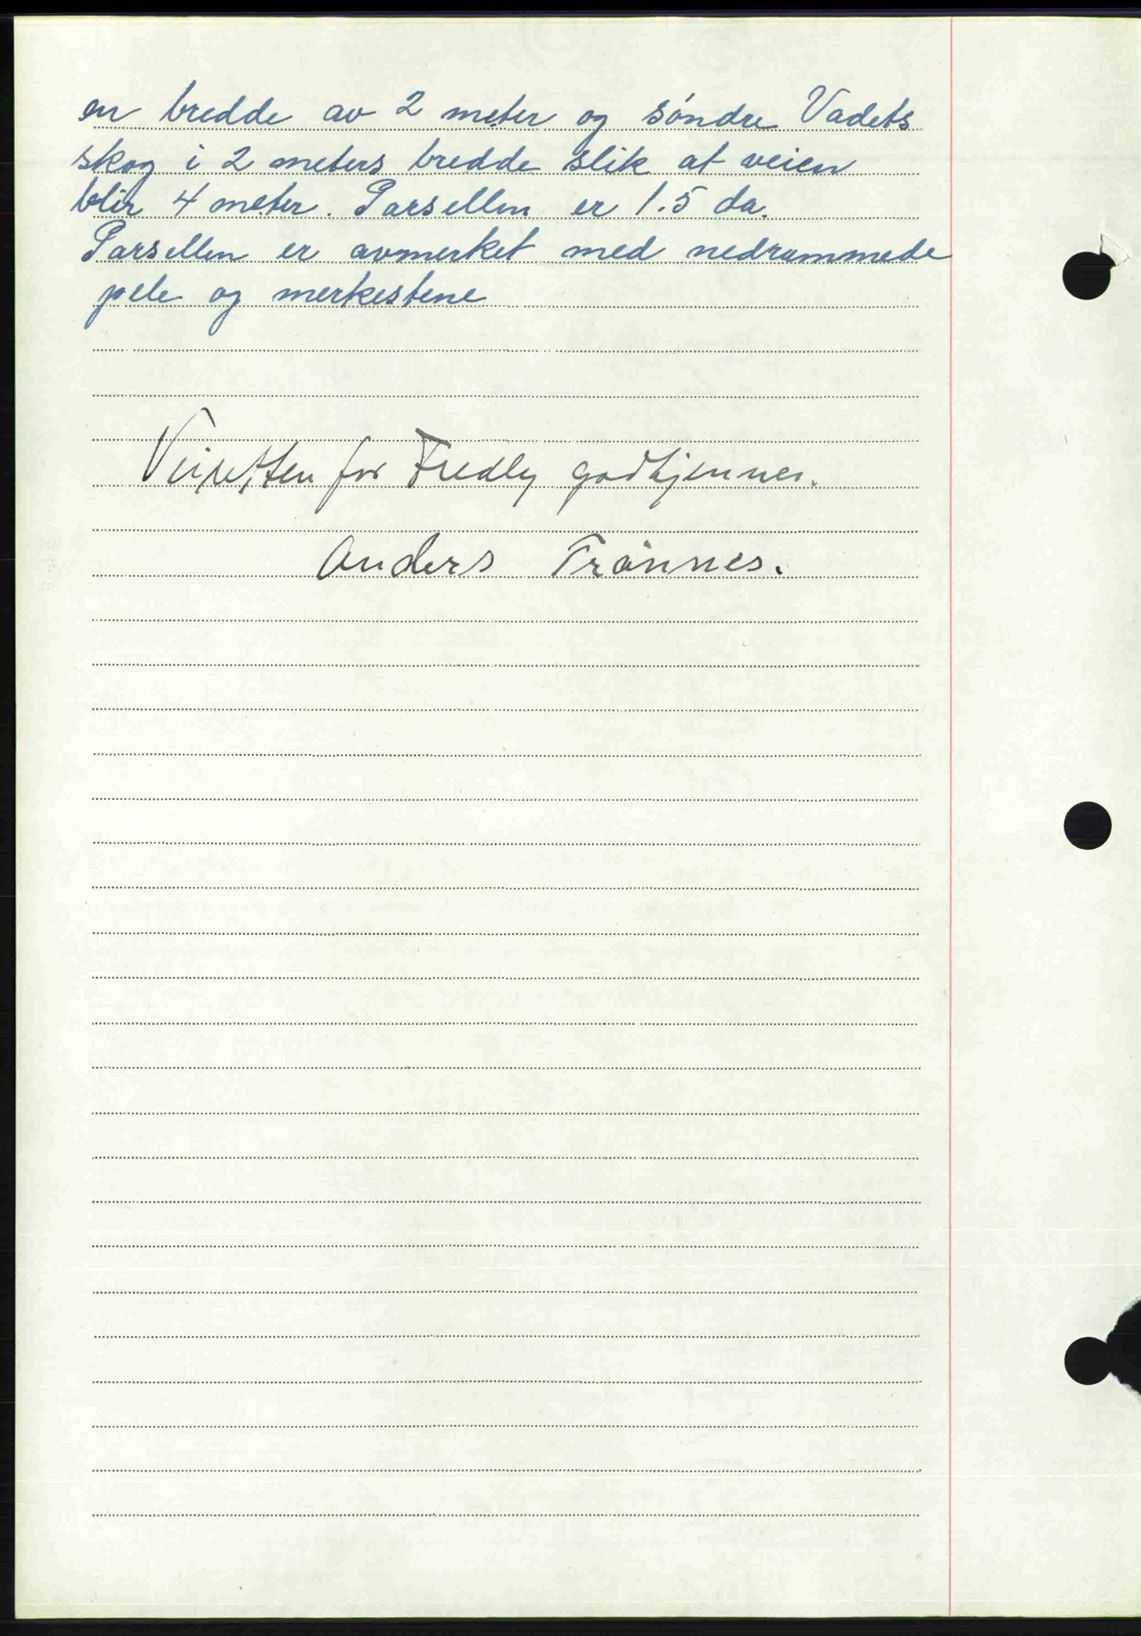 en bredde av 2 meter og søndre Vadets
skog i 2 meters bredde slik at veien
blir 4 meter. Parsellen er 1.5 da.
Parsellen er avmerket med nedrammede
pele og merkestene
Veiretten for Fredly godkjennes.
Anders Trønnes.